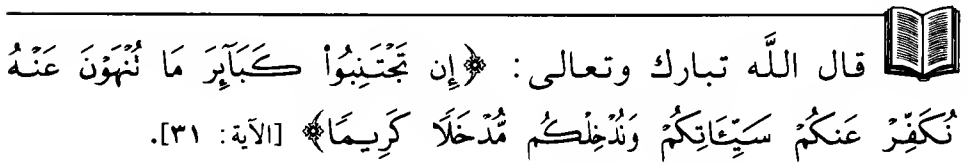 قال اللَّه تبارك وتعالى: ﴿إِن تَجْتَنِبُواْ كَبَآئِرَ مَا تُنْهَوْنَ عَنْهُ
نُكَفِّرْ عَنكُمْ سَيِّئَاتِكُمْ وَنُدْخِلْكُم مُّدْخَلًا كَرِيمًا﴾ [الآية: ٣١].